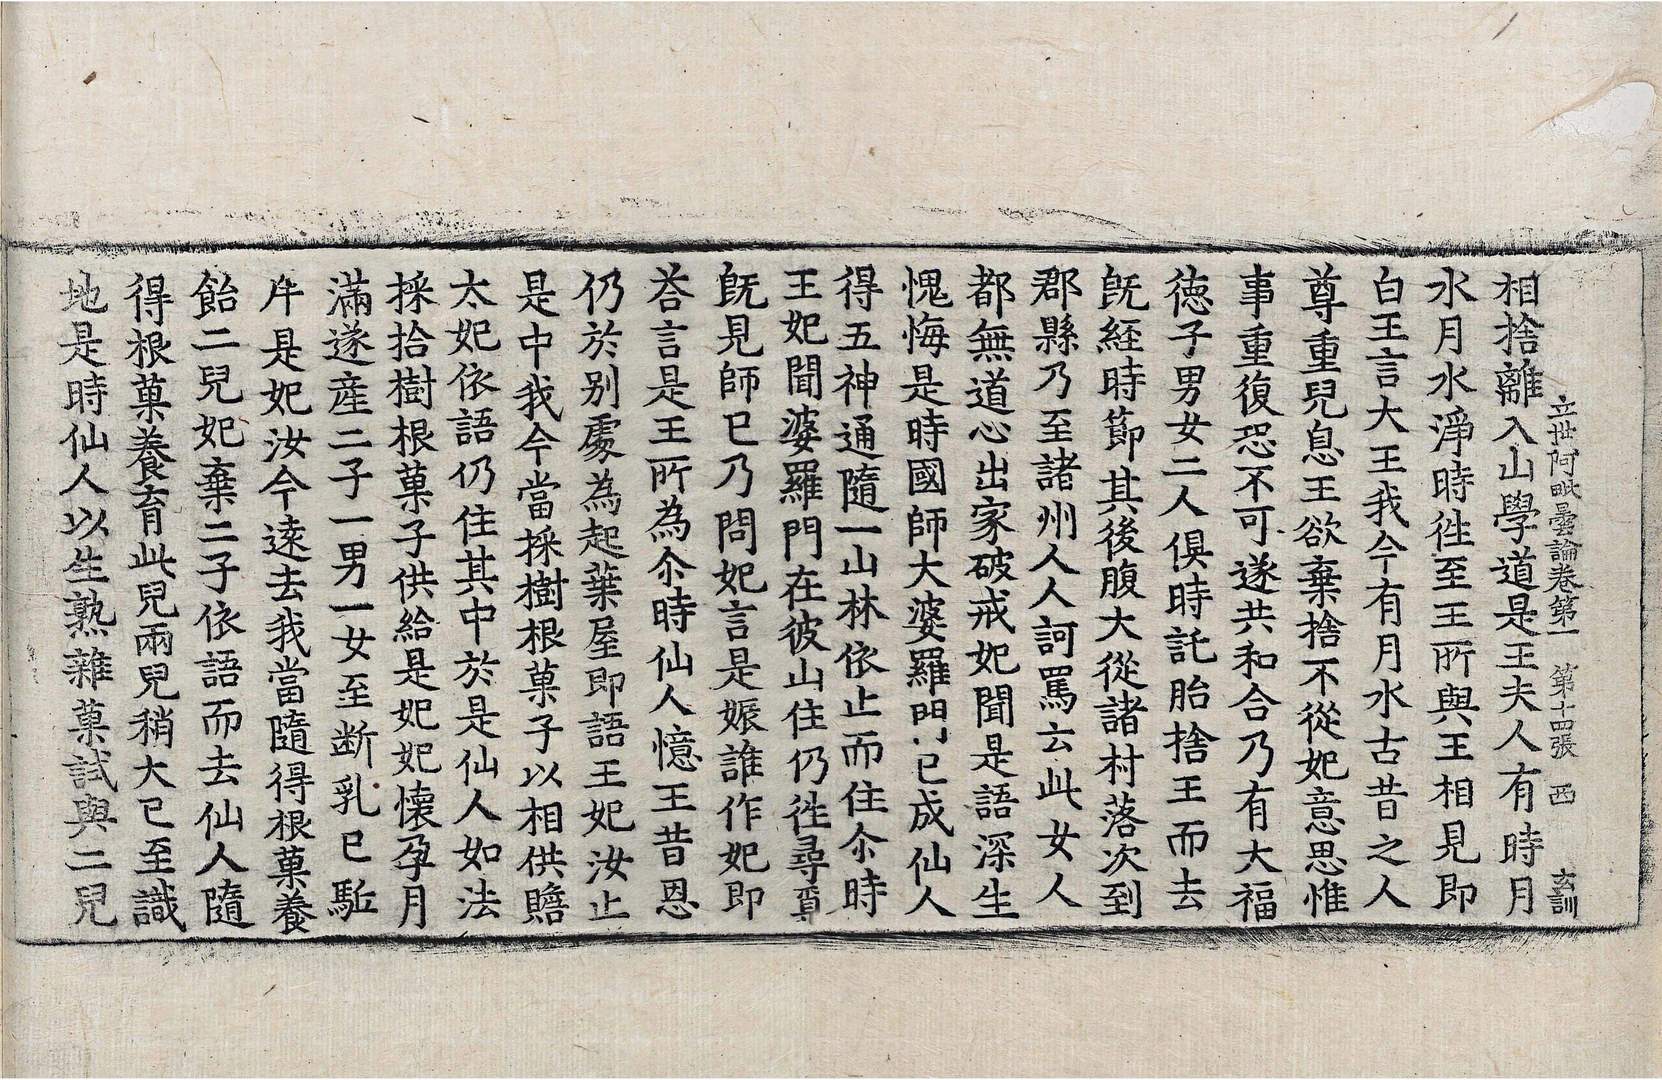 立世阿毗曇論卷第一 第十四張 西 玄訓
相捨離入山學道是王夫人有時月
水月水淨時徃至王所與王相見即
白王言大王我今有月水古昔之人
尊重兒息王欲棄捨不從妃意思惟
事重復恐不可遂共和合乃有大福
徳子男女二人俱時託胎捨王而去
旣經時節其後腹大從諸村落次到
郡縣乃至諸州人人訶罵云此女人
都無道心出家破戒妃聞是語深生
愧悔是時國師大婆羅門已成仙人
得五神通隨一山林依止而住尒時
王妃聞婆羅門在彼山住仍徃尋覓
旣見師已乃問妃言是娠誰作妃即
荅言是王所為尒時仙人憶王昔恩
仍於别處為起葉屋即語王妃汝止
是中我今當採樹根菓子以相供贍
太妃依語仍住其中於是仙人如法
採拾樹根菓子供給是妃妃懷孕月
滿遂產二子一男一女至断乳已駈
斥是妃汝今遠去我當隨得根菓養
飴二兒妃棄二子依語而去仙人隨
得根菓養育此兒兩兒稍大已至識
地是時仙人以生熟雜菓試與二兒